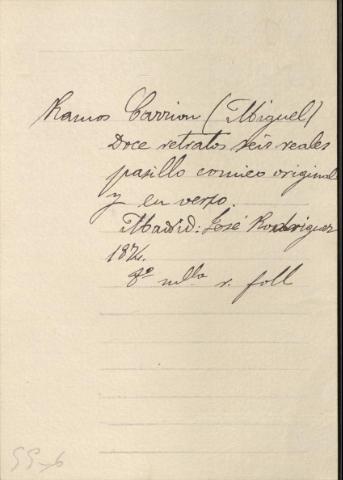 Ramos Carrion (Miguel)
Doce retratos seis reales
pasillo comico original
y en verso.
Madrid: José Rodriguez
1874.
8º mlla r. foll
55-6